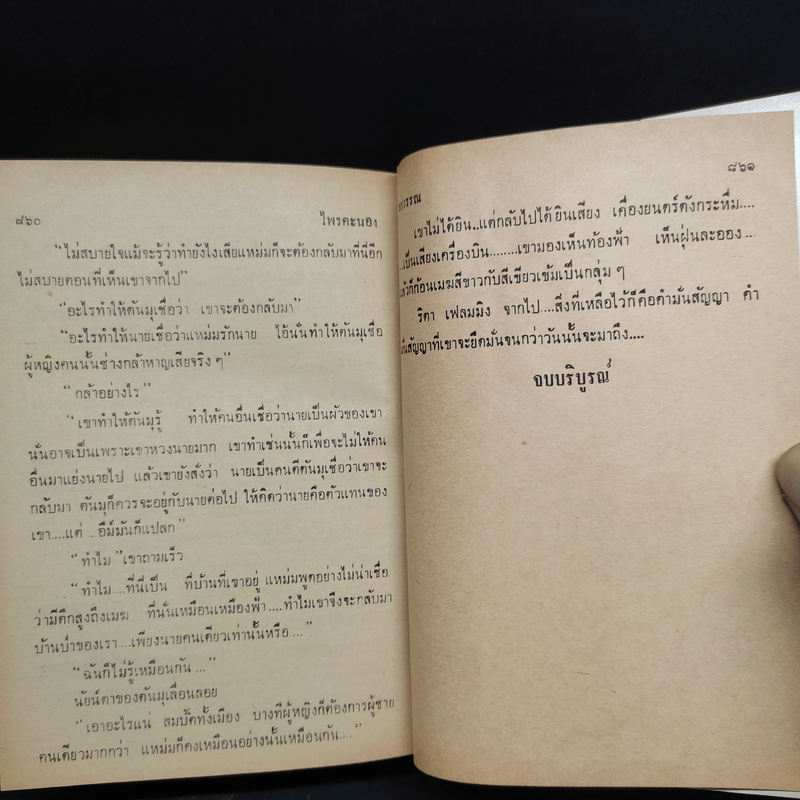 ๘๖๐ ไพรคะนอง
“ไม่สบายใจแม้จะรู้ว่าทำยังไงเสียแหม่มก็จะต้องกลับมาที่นี่อีก
ไม่สบายตอนที่เห็นเขาจากไป”
“อะไรทำให้ตันมุเชื่อว่า เขาจะต้องกลับมา”
“อะไรทำให้นายเชื่อว่าแหม่มรักนาย ไอ้นั่นทำให้ตันมุเชื่อ
ผู้หญิงคนนั้นช่างกล้าหาญเสียจริง ๆ”
“กล้าอย่างไร”
“เขาทำให้ตันมุรู้ ทำให้คนอื่นเชื่อว่านายเป็นผัวของเขา
นั่นอาจเป็นเพราะเขาหวงนายมาก เขาทำเช่นนั้นก็เพื่อจะไม่ให้คน
อื่นมาแย่งนายไป แล้วเขายังสั่งว่า นายเป็นคนดีตันมุเชื่อว่าเขาจะ
กลับมา ตันมุก็ควรจะอยู่กับนายต่อไป ให้คิดว่านายคือตัวแทนของ
เขา....แต่ ..อืม์มันก็แปลก”
“ทำไม” เขาถามเร็ว
“ทำไม ...ที่นี่เป็น ที่บ้านที่เขาอยู่ แหม่มพูดอย่างไม่น่าเชื่อ
ว่ามีตึกสูงถึงเมฆ ที่นั่นเหมือนเหมืองฟ้า....ทำไมเขาจึงจะกลับมา
บ้านป่าของเรา ...เพียงนายคนเดียวเท่านั้นหรือ ...”
“ฉันก็ไม่รู้เหมือนกัน ...”
นัยน์ตาของตันมุเลื่อนลอย
“เอาอะไรแน่ สมบัติทั้งเมือง บางทีผู้หญิงก็ต้องการผู้ชาย
คนเดียวมากกว่า แหม่มก็คงเหมือนอย่างนั้นเหมือนกัน....”
๘๖๑
เขาไม่ได้ยิน..แต่กลับไปได้ยินเสียง เครื่องยนตร์ดังกระหึ่ม....
...เป็นเสียงเครื่องบิน........เขามองเห็นท้องฟ้า เห็นฝุ่นละออง...
แล้วก็ก้อนเมฆสีขาวกับสีเขียวเข้มเป็นกลุ่ม ๆ
ริตา เฟลมมิง จากไป....สิ่งที่เหลือไว้ก็คือคำมั่นสัญญา คำ
มั่นสัญญาที่เขาจะยึดมั่นจนกว่าวันนั้นจะมาถึง....
จบบริบูรณ์